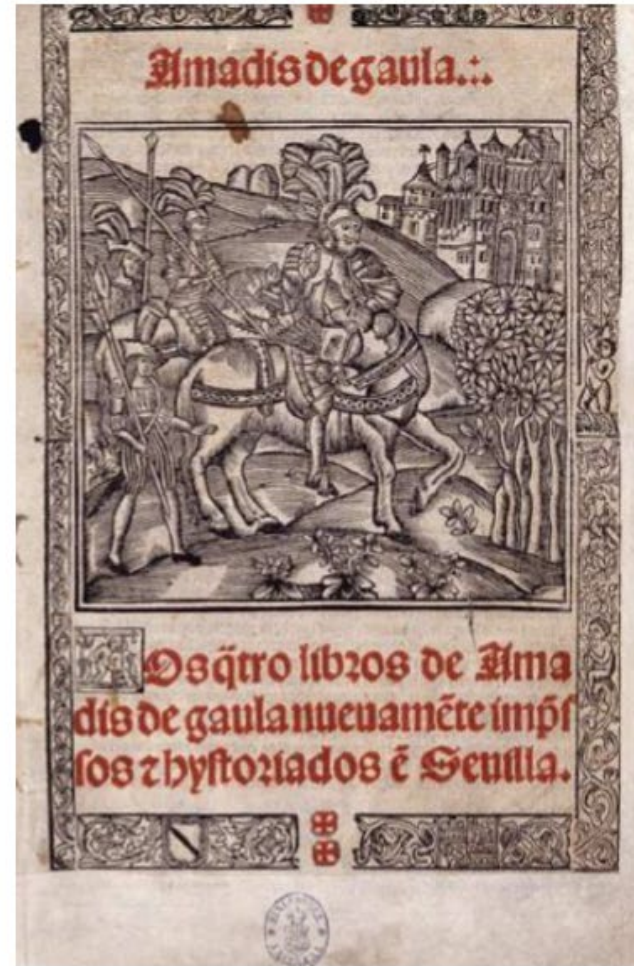 Amadis de gaula.:.
Los q̃tro libros de Ama
dis de gaula nueuamẽte imp̃ſ
ſos ⁊ hyſtoriados ẽ Seuilla.